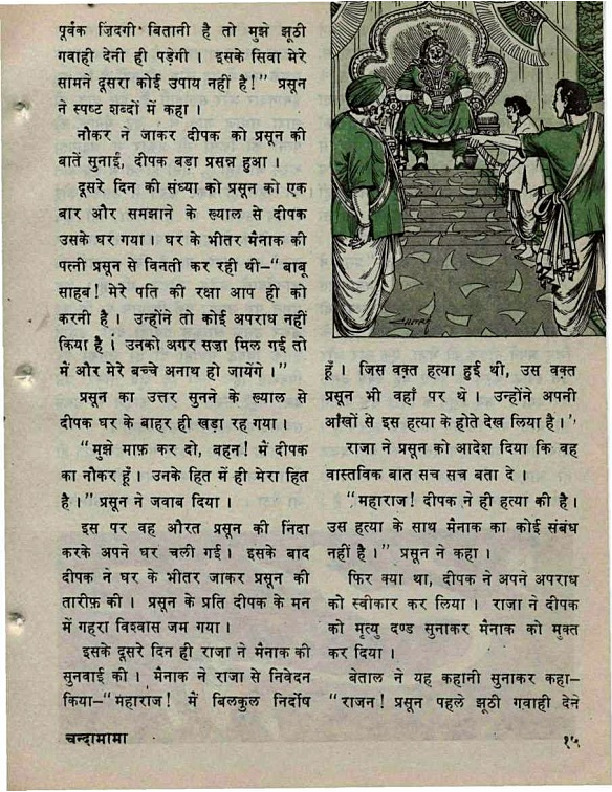 पूर्वक ज़िंदगी बितानी है तो मुझे झूठी
गवाही देनी ही पड़ेगी । इसके सिवा मेरे
सामने दूसरा कोई उपाय नहीं है!" प्रसून
ने स्पष्ट शब्दों में कहा ।
नौकर ने जाकर दीपक को प्रसून की
बातें सुनाई, दीपक बड़ा प्रसन्न हुआ ।
दूसरे दिन की संध्या को प्रसून को एक
बार और समझाने के ख्याल से दीपक
उसके घर गया । घर के भीतर मैनाक की
पत्नी प्रसून से विनती कर रही थी-"बाबू
साहब! मेरे पति की रक्षा आप ही को
करनी है । उन्होंने तो कोई अपराध नहीं
किया है । उनको अगर सज़ा मिल गई तो
में और मेरे बच्चे अनाथ हो जायेंगे ।"
प्रसून का उत्तर सुनने के ख्याल से
दीपक घर के बाहर ही खड़ा रह गया ।
"मुझे माफ़ कर दो, बहन! में दीपक
का नौकर हूँ । उनके हित में ही मेरा हित
है ।" प्रसून ने जवाब दिया ।
इस पर वह औरत प्रसून की निंदा
करके अपने घर चली गई । इसके बाद
दीपक ने घर के भीतर जाकर प्रसून की
तारीफ़ की । प्रसून के प्रति दीपक के मन
में गहरा विश्वास जम गया ।
इसके दूसरे दिन ही राजा ने मैनाक की
सुनवाई की । मैनाक ने राजा से निवेदन
किया-"महाराज! में बिलकुल निर्दोष
हूँ । जिस वक़्त हत्या हुई थी, उस वक़्त
प्रसून भी वहाँ पर थे । उन्होंने अपनी
आँखों से इस हत्या के होते देख लिया है ।"
राजा ने प्रसून को आदेश दिया कि वह
वास्तविक बात सच सच बता दे ।
"महाराज! दीपक ने ही हत्या की है ।
उस हत्या के साथ मैनाक का कोई संबंध
नहीं है ।" प्रसून ने कहा ।
फिर क्या था, दीपक ने अपने अपराध
को स्वीकार कर लिया । राजा ने दीपक
को मृत्यु दण्ड सुनाकर मैनाक को मुक्त
कर दिया ।
बेताल ने यह कहानी सुनाकर कहा-
"राजन! प्रसून पहले झूठी गवाही देने
चन्दामामा